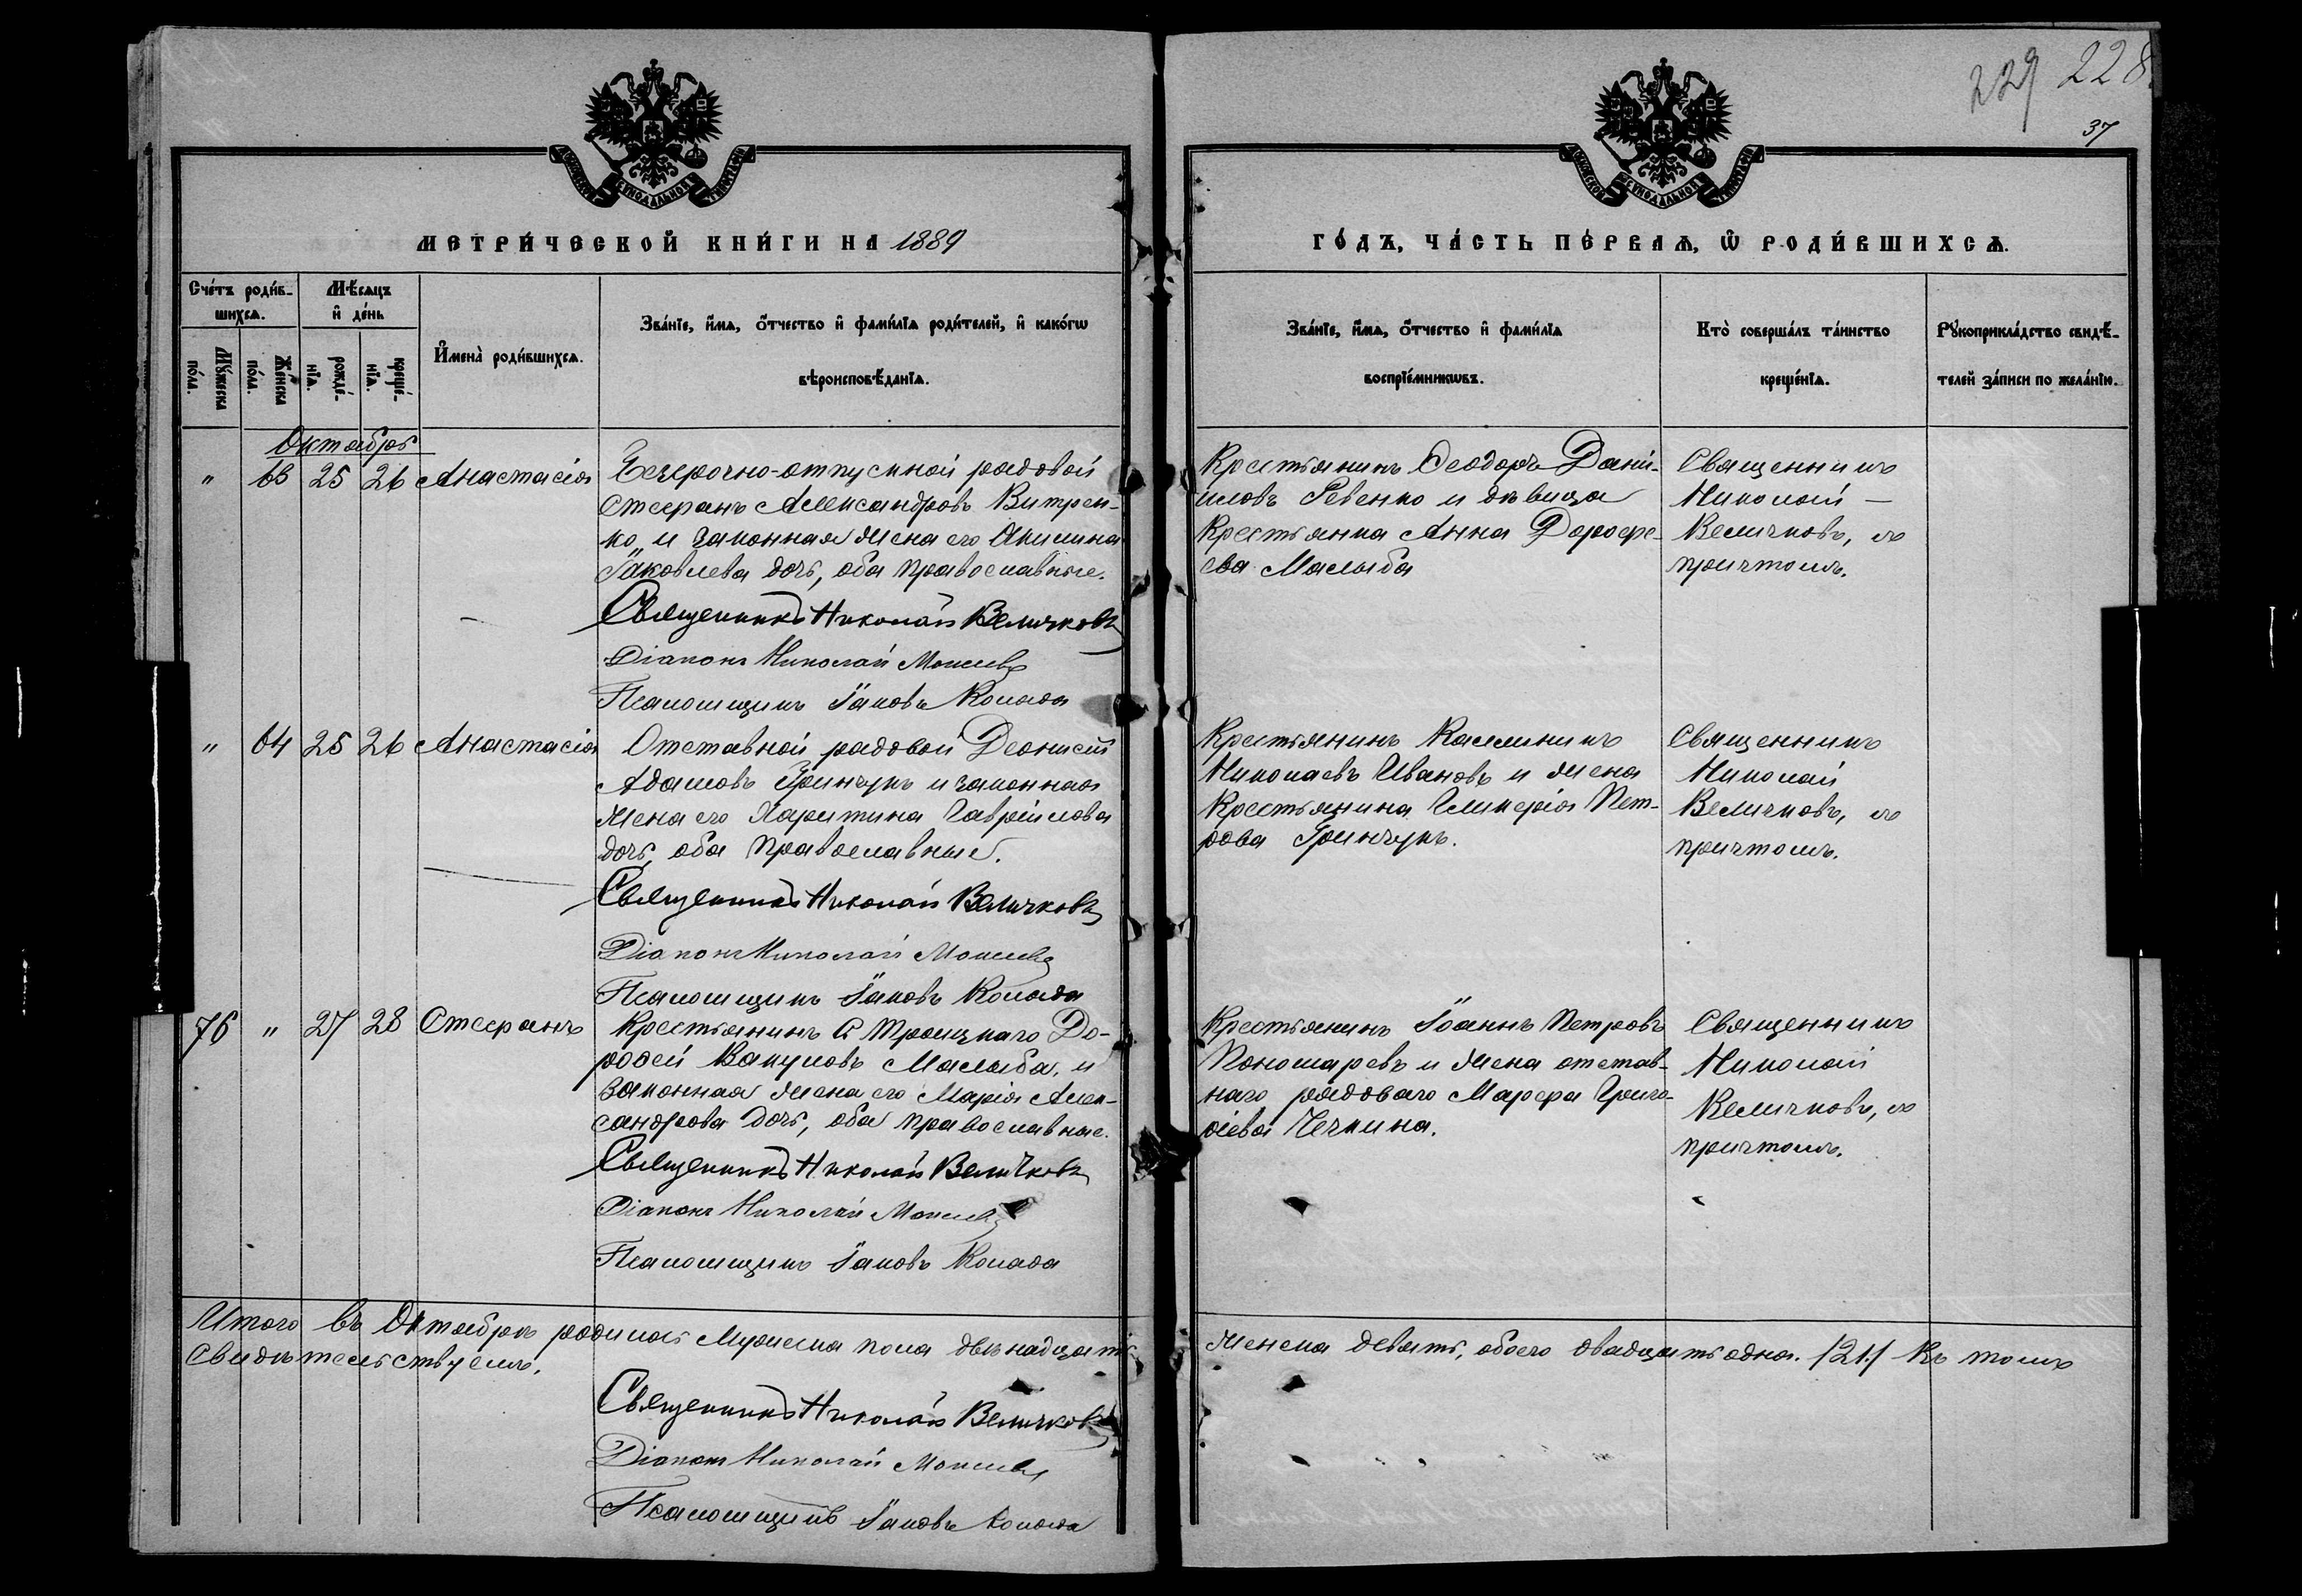 229 228
37
МОСКОВСКОЙ СѴНОДАЛЬНОЙ ТИПОГРАФІИ
МОСКОВСКОЙ СѴНОДАЛЬНОЙ ТИПОГРАФІИ
МЕТРИ́ЧЕСКОЙ КНИ́ГИ НА 1889
ГО́ДЪ, ЧА́СТЬ ПЕ́РВАѦ, Ѡ РОДИ́ВШИХСѦ.
Сче́тъ роди́в-
шихсѧ.
Мѣ́сѧцъ
и҆ де́нь
Мꙋ́жеска
по́ла.
Же́нска
по́ла.
рожде́-
нїѧ.
креще́-
нїѧ.
И҆мена̀ роди́вшихсѧ.
Зва́нїе, и҆́мѧ, ѻ҆́тчество и҆ фами́лїѧ роди́телей, и҆ како́гѡ
вѣроисповѣ́данїѧ.
Зва́нїе, и҆́мѧ, ѻ҆́тчество и҆ фами́лїѧ
воспрїе́мникѡвъ.
Кто̀ соверша́лъ та́инство
креще́нїѧ.
Рꙋкоприкла́дство свидѣ́-
телей за́писи по жела́нїю.
Октябрь
" 63 25 26 Анастасія
Безсрочно-отпускной рядовой
Стефанъ Александровъ Витрен-
ко и законная жена его Акилина
Іаковлева дочь, оба православные.
Священникъ Николай Величковъ
Діаконъ Николай
Псаломщикъ Іаковъ Коляда
Крестьянинъ Ѳеодоръ Дани-
иловъ Ревенко и дѣвица
Крестьянка Анна Дорофе-
ева Малыба
Священникъ
Николай —
Величковъ, съ
причтомъ.
" 64 25 26 Анастасія
Отставной рядовой Діонисій
Адамовъ Гринчукъ и законная
жена его Харитина Гавріилова
дочь, оба православные.
Священникъ Николай Величковъ
Діаконъ Николай
Псаломщикъ Іаковъ Коляда
Крестьянинъ Каллиникъ
Николаевъ Ивановъ и жена
Крестьянина Гликерія Пет-
рова Гринчукъ.
Священникъ
Николай
Величковъ, съ
причтомъ.
76 " 27 28 Стефанъ
Крестьянинъ с. Троицкаго До-
роѳей Вакуловъ Малыба, и
законная жена его Марія Алек-
сандрова дочь, оба православные.
Священникъ Николай Величковъ
Діаконъ Николай
Псаломщикъ Іаковъ Коляда
Крестьянинъ Іоаннъ Петровъ
Пономаревъ и жена отстав-
наго рядоваго Марфа Григо-
ріева Чечкина.
Священникъ
Николай
Величковъ, съ
причтомъ.
Итого въ Октябрѣ родилось мужеска пола двѣнадцать
женска девять, обоего двадцать одна. /21./ Въ томъ
свидѣтельствуемъ.
Священникъ Николай Величковъ
Діаконъ Николай
Псаломщикъ Іаковъ Коляда